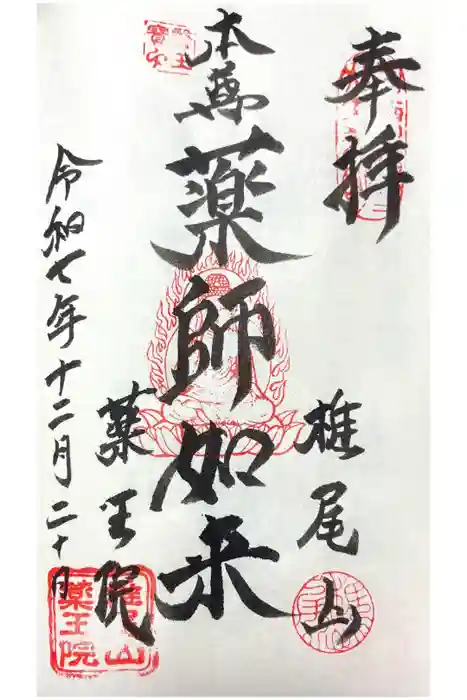 奉拝
椎尾山
本尊
薬師如来
薬王院
令和七年十二月二十日
椎尾山
薬王院